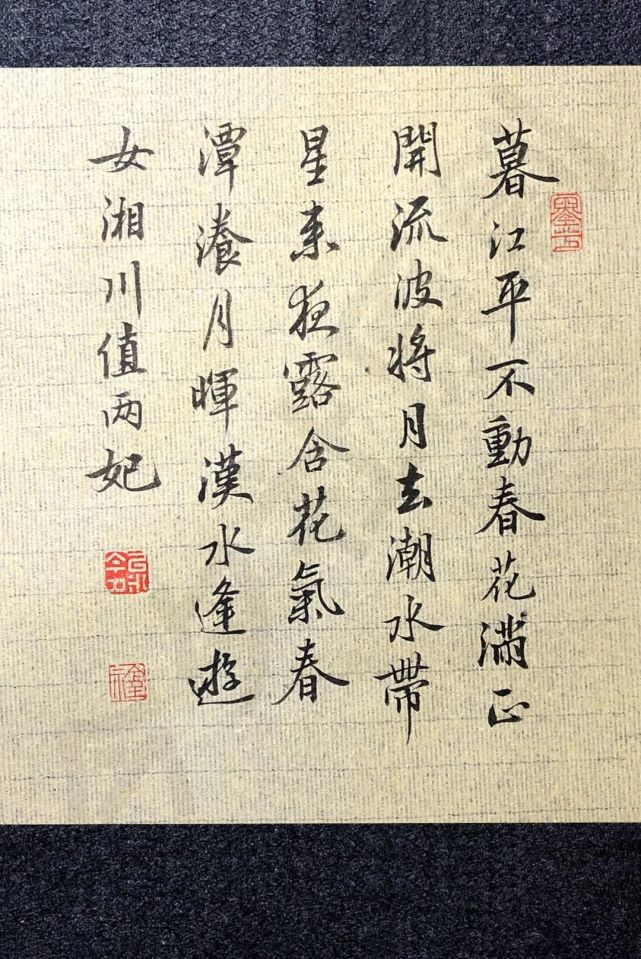 暮江平不動春花滿正
開流波將月去潮水帶
星来夜露含花氣春
潭瀁月暉漢水逢遊
女湘川值两妃